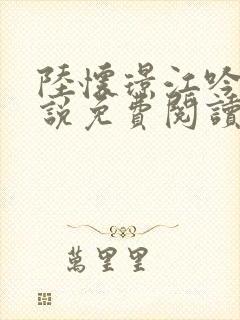 陸懷璟江吟
說免費閱讀
萬里里